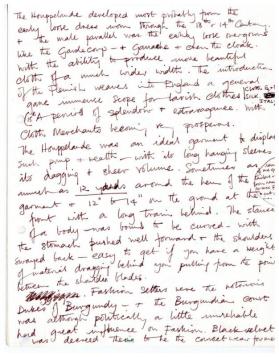 The Houppelande developed most probably from the
early loose dress worn Through the 13th & 14th Century.
male parallel was the early loose overgowns
like the Gardecorp - + Ganache + even the cloak.
with the ability to produce more beautiful
cloth of a much wider width. The introduction
of the Flemish weavers into England a general
gave immense scope for lavish clothes
a period of splendor & extravagance. with
Cloth Merchants becoming very prosperous.
The Houppelande was an ideal garment to display
such pomp & wealth - with its long hanging sleeves
its dagging & sheer volume. Sometimes as
much as 12 yards around the hem of the
garment & 12" to 14 on the ground at the
front with a long train behind. The stance
of a body was bound to be curved - with
the stomach pushed well forward & the shoulders
swayed back - easy to get if you have a weight
of material dragging behind you pulling from the point
between the shoulder blades.
Fashion Setters were the notorious
Dukes of Burgundy - & the Burgundian court
was although politically a little unreliable
had great influence on Fashion. Black velvet
was deemed there to be the correct wear for